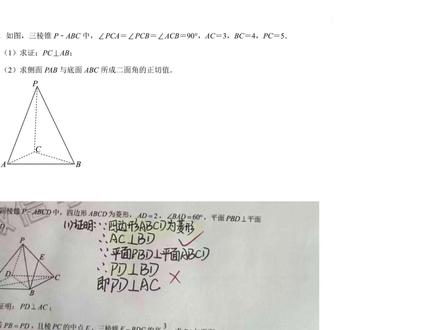 如图，三棱锥 P－ABC 中，∠PCA＝∠PCB＝∠ACB＝90°，AC＝3，BC＝4，PC＝5．
（1）求证：PC⊥AB；
（2）求侧面 PAB 与底面 ABC 所成二面角的正切值．
P
C
A
B
棱锥 P－ABCD 中，四边形 ABCD 为菱形，AD＝2，∠BAD＝60°，平面 PBD⊥平面
(1)证明：∵四边形ABCD为菱形
∴AC⊥BD
∵平面PBD⊥平面ABCD
∴PD⊥BD
即PD⊥AC
P
E
D
C
B
证明：PD⊥AC；
PB＝PD，且棱 PC 的中点 E，三棱锥 E－BDC 的